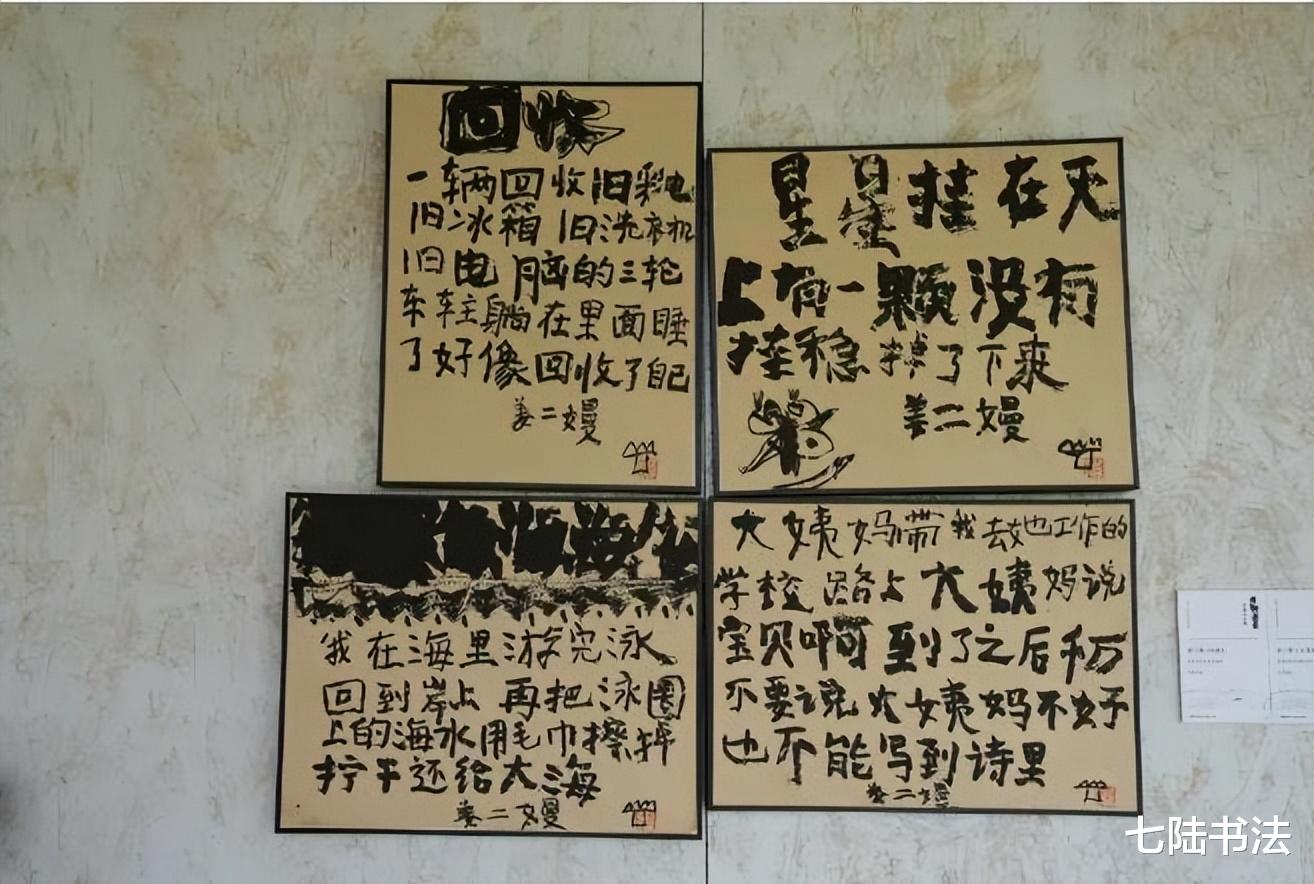 回收
一辆回收旧彩电
旧冰箱旧洗衣机
旧电脑的三轮
车车主躺在里面睡
了好像回收了自己
姜二嫚
星星挂在天
上有一颗没有
挂稳掉了下来
姜二嫚
我在海里游完泳
回到岸上再把泳圈
上的海水用毛巾擦掉
拧干还给大海
姜二嫚
大姨妈带我去她工作的
学校路上大姨妈说
宝贝啊到了之后千万
不要说大姨妈不好
也不能写到诗里
姜二嫚
七陆书法